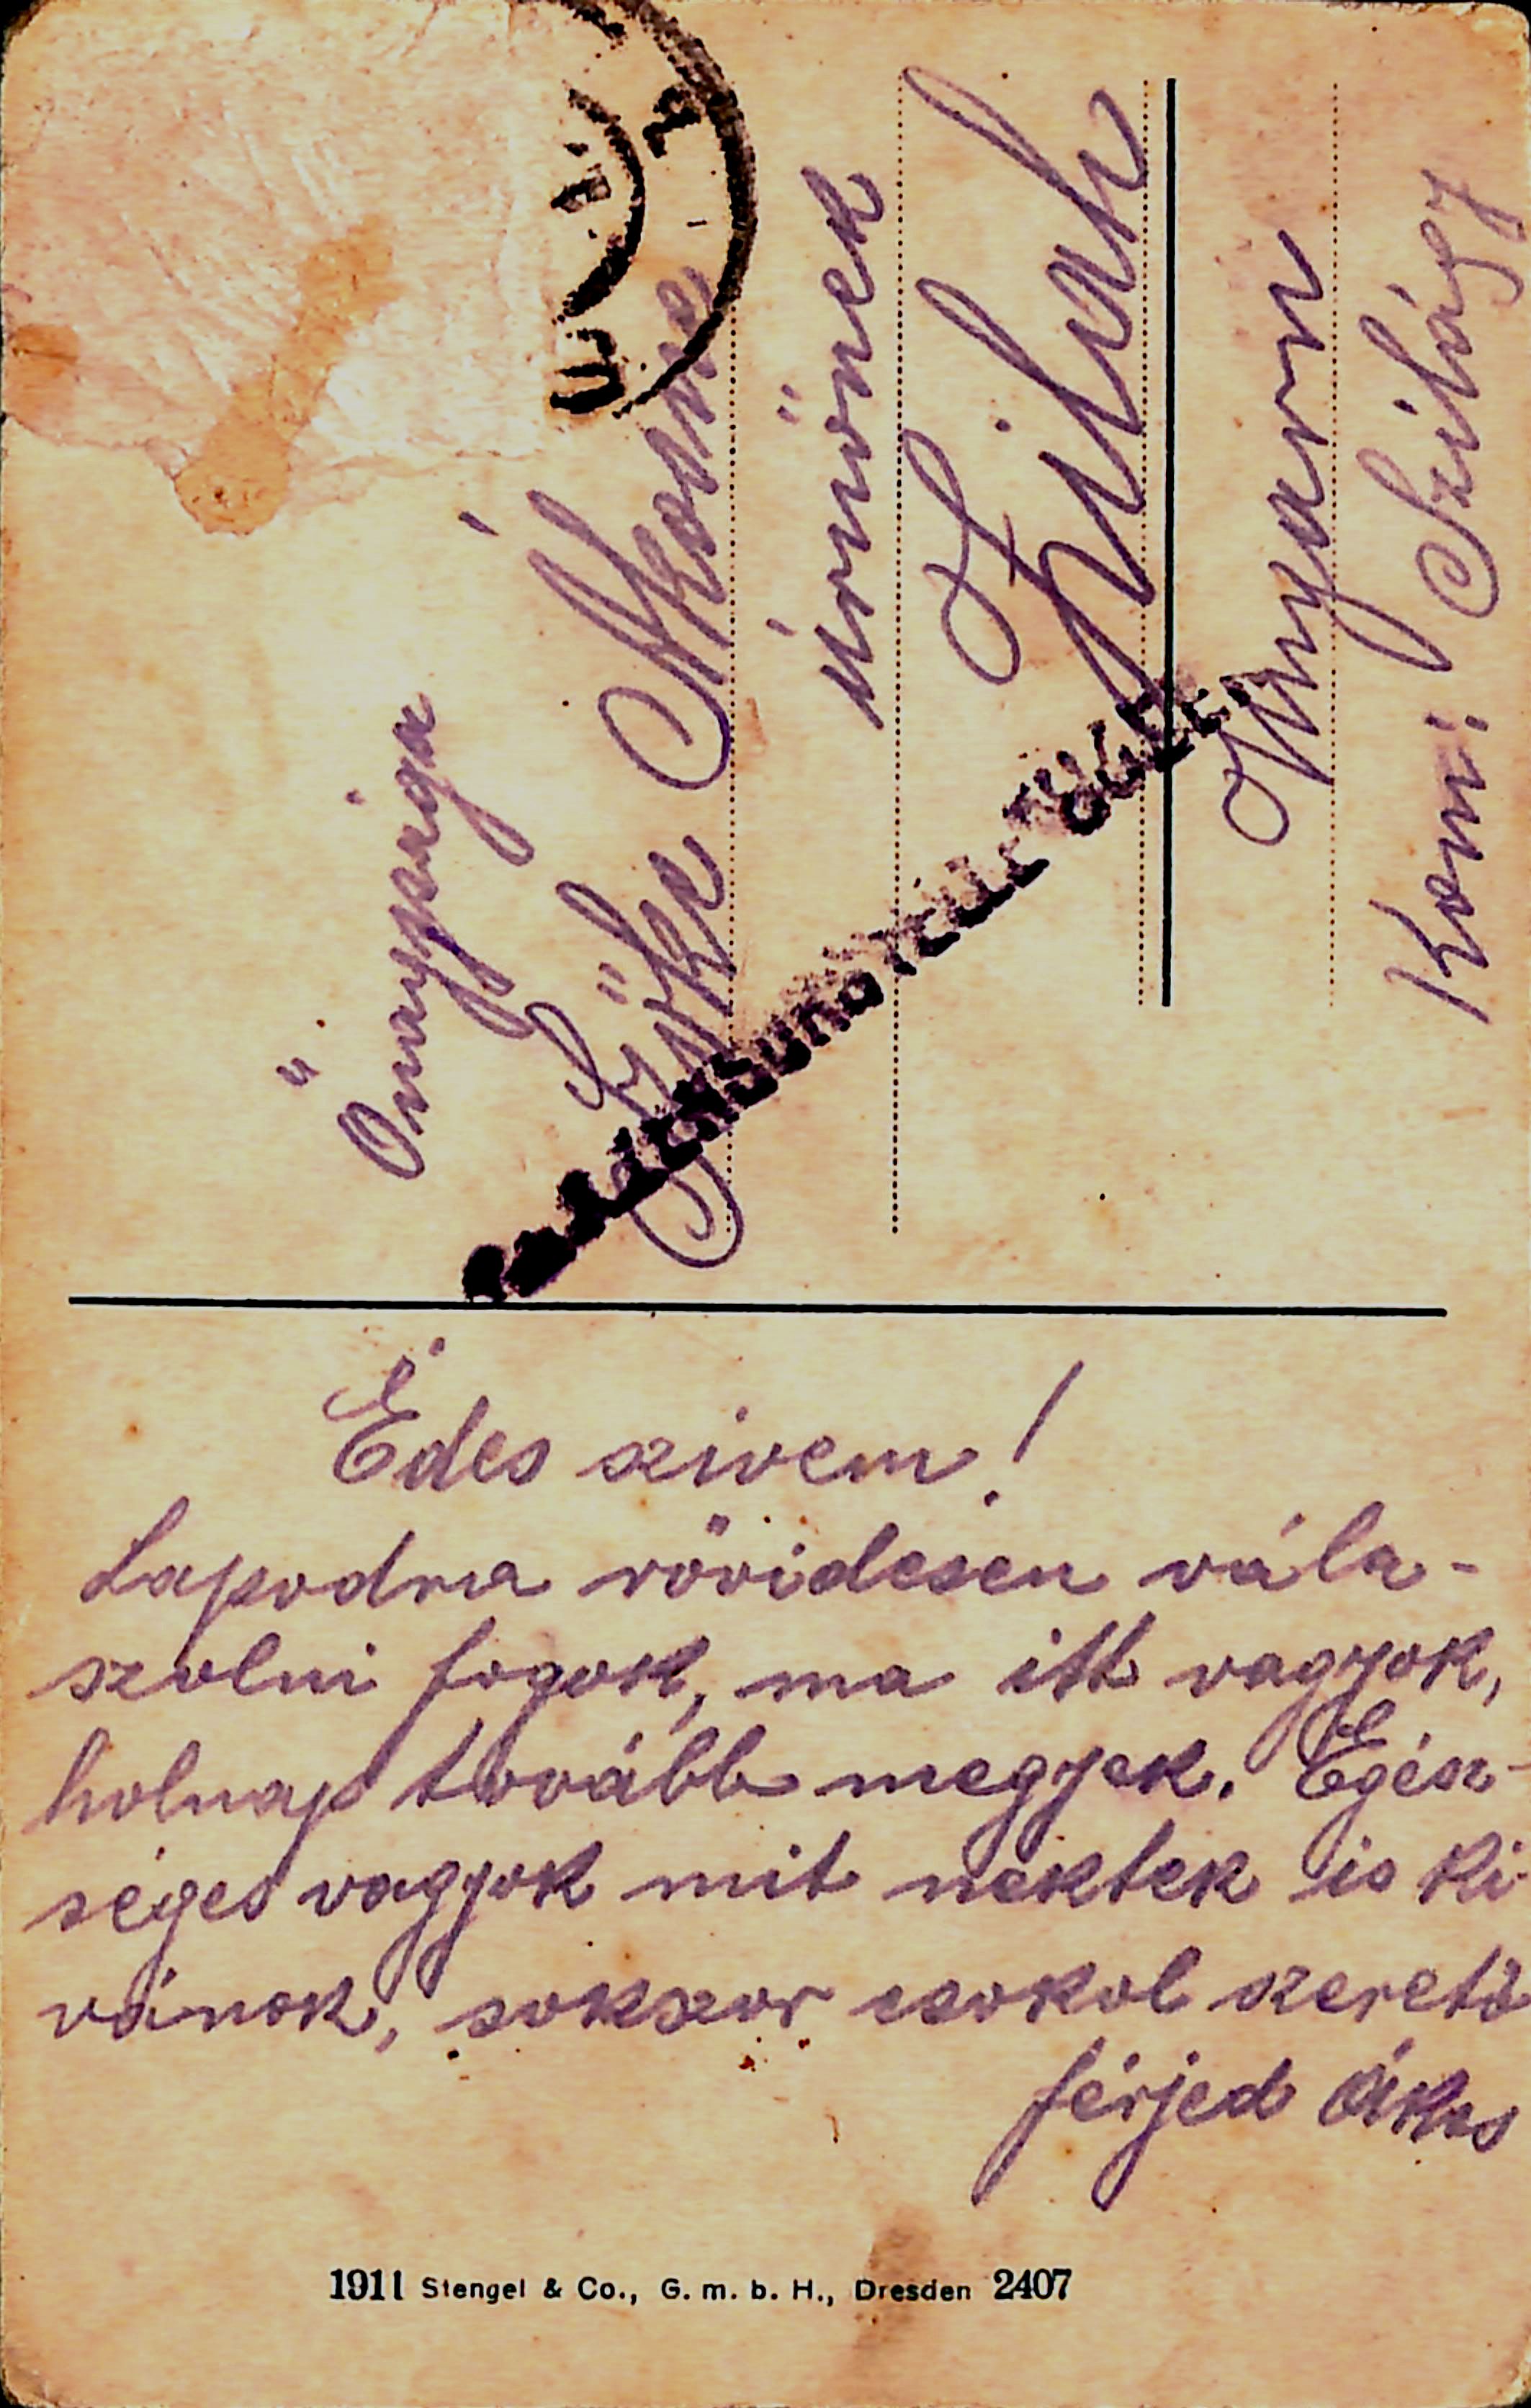 Őnagysága
Szőke Ákosné
úrnőnek
Zilah
Ungarn
Kom: Szilágy
Édes szivem!
Lapodra rövidesen vála-
szolni fogok, ma itt vagyok,
holnap tovább megyek. Egész-
séges vagyok mit néktek is ki-
vánok, sokszor csokol szerető
férjed Ákos
1911 Stengel & Co., G. m. b. H., Dresden 2407